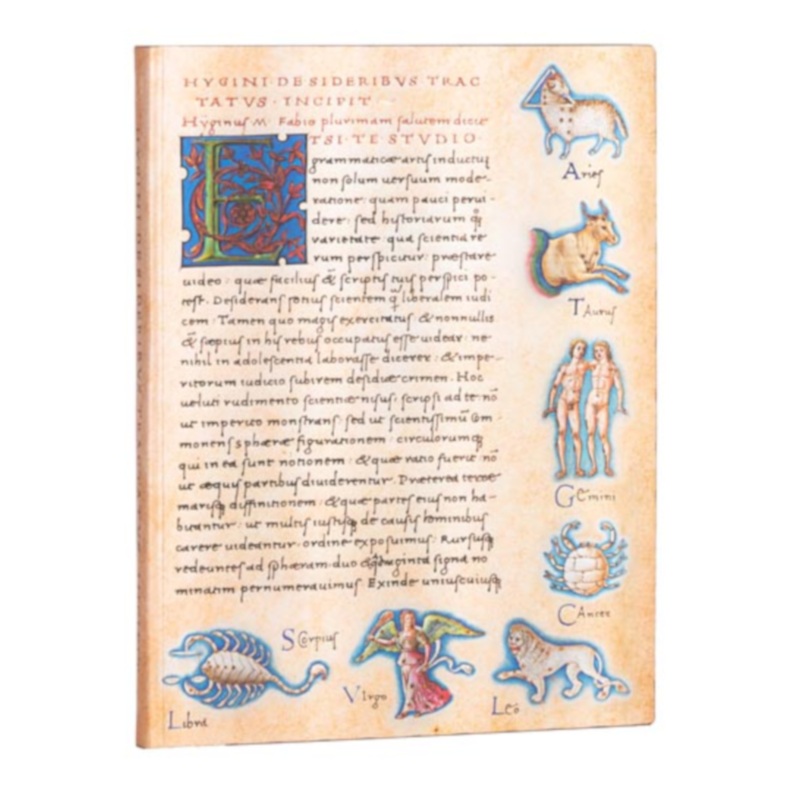 HYGINI·DE SIDERIBVS TRAC
TATVS·INCIPIT
Hÿginus M. Fabio plurimam salutem dicit
ETSI·TE STVDIO·
grammaticæ artis inductus
non solum uersuum mode-
ratione: quam pauci perui-
dere: sed historiarum q̃
varietate qua scientia re
rum perspicitur: præstare
uideo: quæ facilius & scriptis tuis perspici po-
test. Desiderans potius scientem q̃ liberalem iudi
cem. Tamen quo magis exercitatus & nonnullis
& sæpius in his rebus occupatus esse uidear: ne
nihil in adolescentia laborasse dicerer: & impe-
ritorum iudicio subirem desidiæ crimen. Hoc
ueluti rudimento scientiæ nisus: scripsi ad te nõ
ut imperito monstrans: sed ut scientissimũ com-
monens sphæræ figurationem: circulorumq;
qui in ea sunt notionem: & quæ ratio fuerit nõ
ut æquis partibus diuiderentur. Præterea terræ
marisq; diffinitionem: & quæ partes eius non ha-
bitantur: ut multis iustisq; de causis hominibus
carere uideantur: ordine exposuimus. Rursusq;
redeuntes ad sphæram duo & signa no
minatim pernumerauimus. Exinde uniuscuiusq;
Aries
TAurus
GEmini
CAncer
LEo
Virgo
SCorpius
Libra